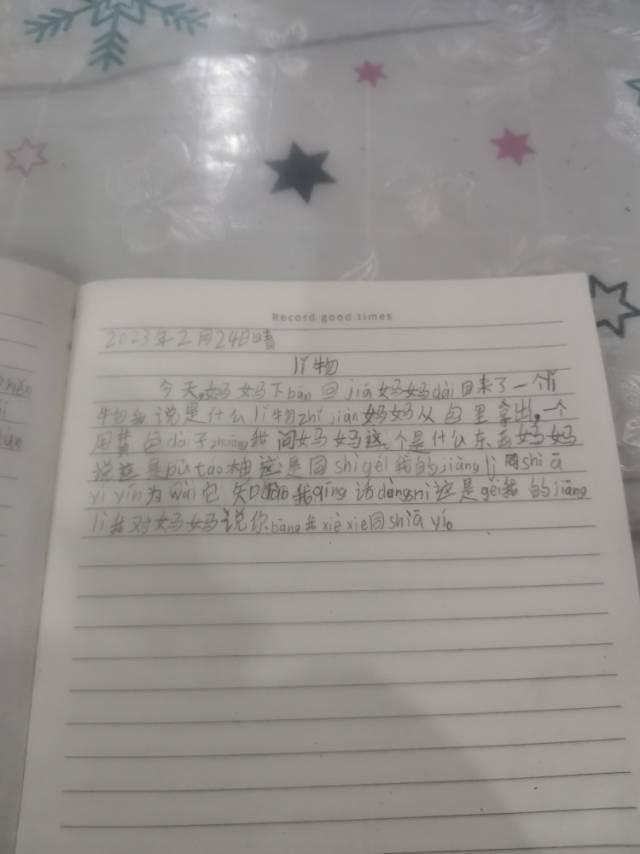 Record good times
2023年2月24日晴
lǐ物
今天妈妈下bān回jiā妈妈dài回来了一个lǐ
物我说是什么lǐ物zhǐ jiàn妈妈从包里拿出一个
用黄色dài子zhuāng我问妈妈这个是什么东西妈妈
说这是pú táo柚这是同shì gěi我的jiǎng lì 同shì ā
yí yīn为wài它知dào我qīng 这是gěi我的jiǎng
lì我对妈妈说你bāng我xiè xie同shì ā yí。